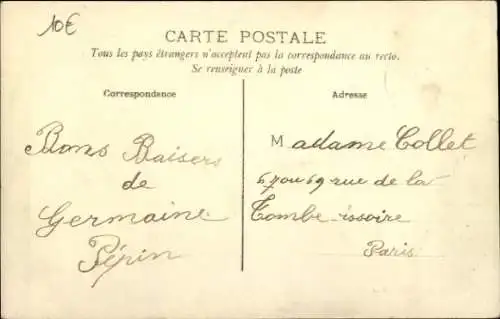 10€
CARTE POSTALE
Tous les pays étrangers n'acceptent pas la correspondance au recto.
Se renseigner à la poste
Correspondance
Bons Baisers
de
Germaine
Pépin
Adresse
Madame Collet
67 ou 69 rue de la
Tombe-issoire
Paris